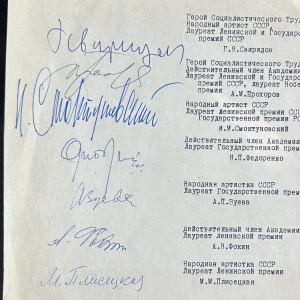 Герой Социалистического Труд
Народный артист СССР
Лауреат Ленинской и Государст
премий СССР
Г.В.Свиридов
Герой Социалистического Труд
Действительный член Академии
Лауреат Ленинской и Государст
премий СССР, лауреат Нобе
премии
А.М.Прохоров
Народный артист СССР
Лауреат Ленинской премии СССР
Государственной премии РС
И. Смоктуновский
И.М.Смоктуновский
Действительный член Академии
Лауреат Государственной преми
Н.П.Федоренко
Народная артистка СССР
Лауреат Государственной премии
А.П.Зуева
А.Зуева
Действительный член Академии
Лауреат Ленинской премии
А.В.Фокин
Народная артистка СССР
Лауреат Ленинской премии
М.М.Плисецкая
М.Плисецкая